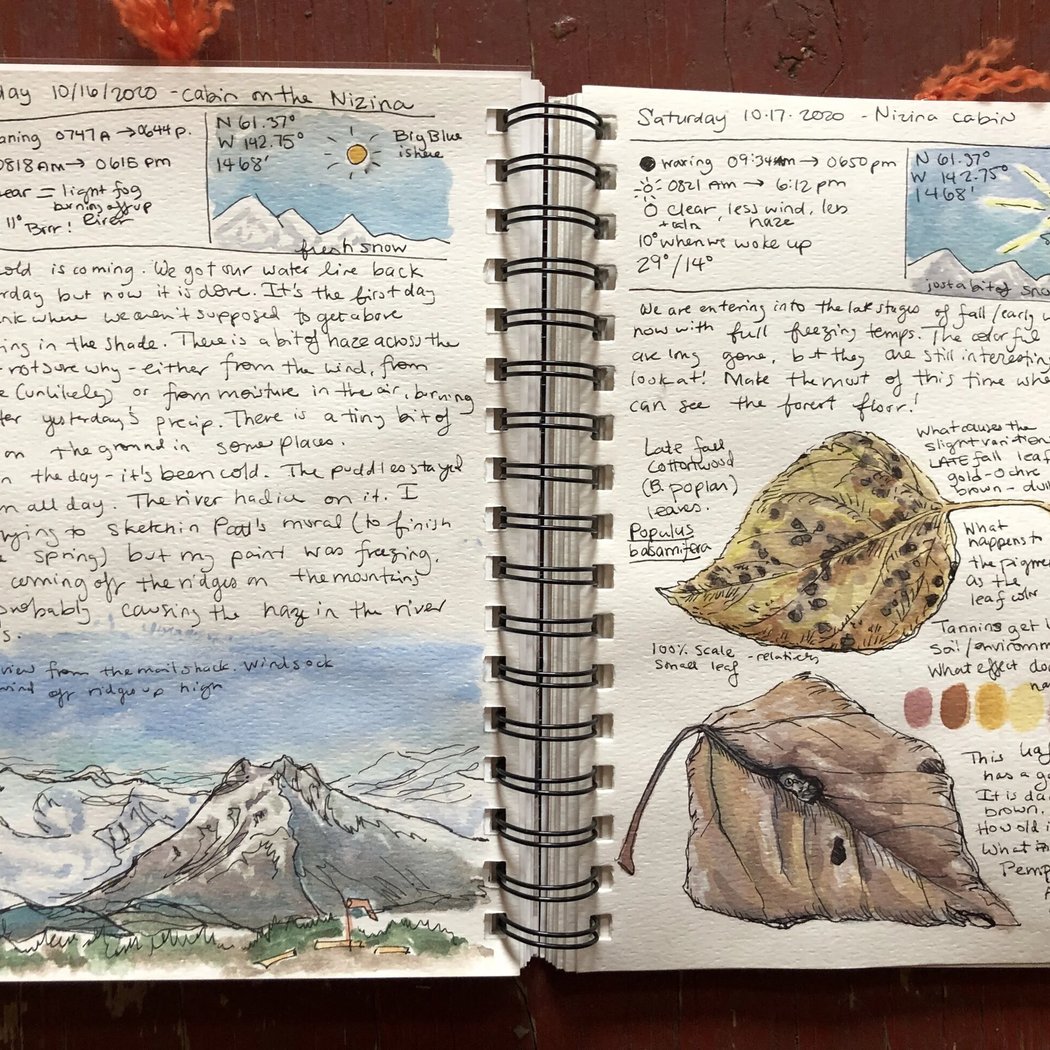 day 10/16/2020 - cabin on the Nizina
0747A → 0644 p.
0818 AM → 0615 pm
ear = light fog
burning off up
11° Brrr! River
N 61.37°
W 142.75°
1468'
Big Blue
is here
fresh snow
old is coming. We got our water line back
rday but now it is done. It's the first day
nk where we aren't supposed to get above
ing in the shade. There is a bit of haze across the
- not sure why - either from the wind, from
e (unlikely) or from moisture in the air, burning
ter yesterday's precip. There is a tiny bit of
on the ground in some places.
n the day - it's been cold. The puddles stayed
n all day. The river had ice on it. I
rying to sketch in Patt's mural (to finish
e spring) but my paint was freezing.
coming off the ridges on the mountains
probably causing the haze in the river
s.
view from the mail shack. Windsock
wind off ridge up high
Saturday 10.17.2020 - Nizina cabin
waxing 09:34 am → 0650 pm
0821 AM → 6:12 pm
clear, less wind, less
+ calm haze
10° when we woke up
29°/14°
N 61.37°
W 142.75°
1468'
just a bit of snow
We are entering into the late stages of fall/early w
now with full freezing temps. The colorful
are long gone, but they are still interesting
look at! Make the most of this time whe
can see the forest floor!
Late fall
Cottonwood
(B. poplar)
leaves.
Populus
balsamifera
What causes the
slight variation
LATE fall leaf
gold - ochre
brown - dull
What
happens to
the pigme
as the
leaf color
100% scale - relatively
small leaf
Tannins get
Soil/environm
What effect do
na
This leaf
has a ga
It is da
brown.
How old i
What i
Pemp